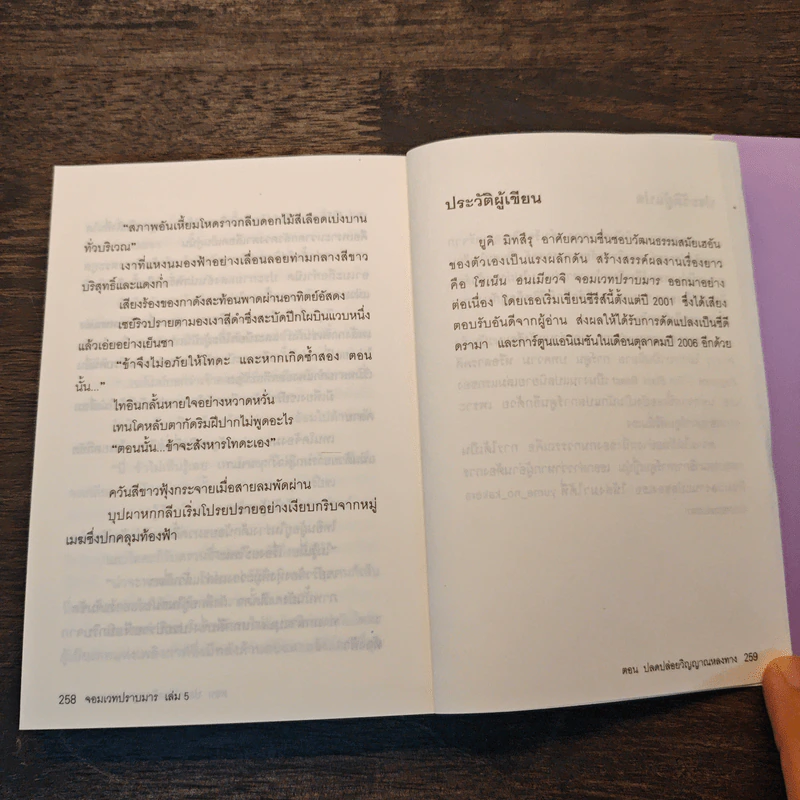 “สภาพอันเหี้ยมโหดราวกลีบดอกไม้สีเลือดเปงบาน
ทั่วบริเวณ”
เงาที่แหงนมองฟ้าอย่างเลื่อนลอยท่ามกลางสีขาว
บริสุทธิ์และแดงก่ำ
เสียงร้องของกาดังสะท้อนพาดผ่านอาทิตย์อัสดง
เซย์ริวปรายตามองเงาสีดำซึ่งสะบัดปีกโผบินแวบหนึ่ง
แล้วเอ่ยอย่างเย็นชา
“ข้าจึงไม่อภัยให้โทดะ และหากเกิดซ้ำสอง ตอน
นั้น...”
ไทอินกลั้นหายใจอย่างหวาดหวั่น
เทนโคหลับตากัดริมฝีปากไม่พูดอะไร
“ตอนนั้น...ข้าจะสังหารโทดะเอง”
ควันสีขาวฟุ้งกระจายเมื่อสายลมพัดผ่าน
บุปผาหกกลีบเริ่มโปรยปรายอย่างเงียบกริบจากหมู่
เมฆซึ่งปกคลุมท้องฟ้า
258 จอมเวทปราบมาร เล่ม 5
ประวัติผู้เขียน
ยูคิ มิทสึรุ อาศัยความชื่นชอบวัฒนธรรมสมัยเฮอัน
ของตัวเองเป็นแรงผลักดัน สร้างสรรค์ผลงานเรื่องยาว
คือ โชเน็น อนเมียวจิ จอมเวทปราบมาร ออกมาอย่าง
ต่อเนื่อง โดยเธอเริ่มเขียนซีรีส์นี้ตั้งแต่ปี 2001 ซึ่งได้เสียง
ตอบรับอันดีจากผู้อ่าน ส่งผลให้ได้รับการดัดแปลงเป็นซีดี
ดรามา และการ์ตูนแอนิเมชันในเดือนตุลาคมปี 2006 อีกด้วย
ตอน ปลดปล่อยวิญญาณหลงทาง 259